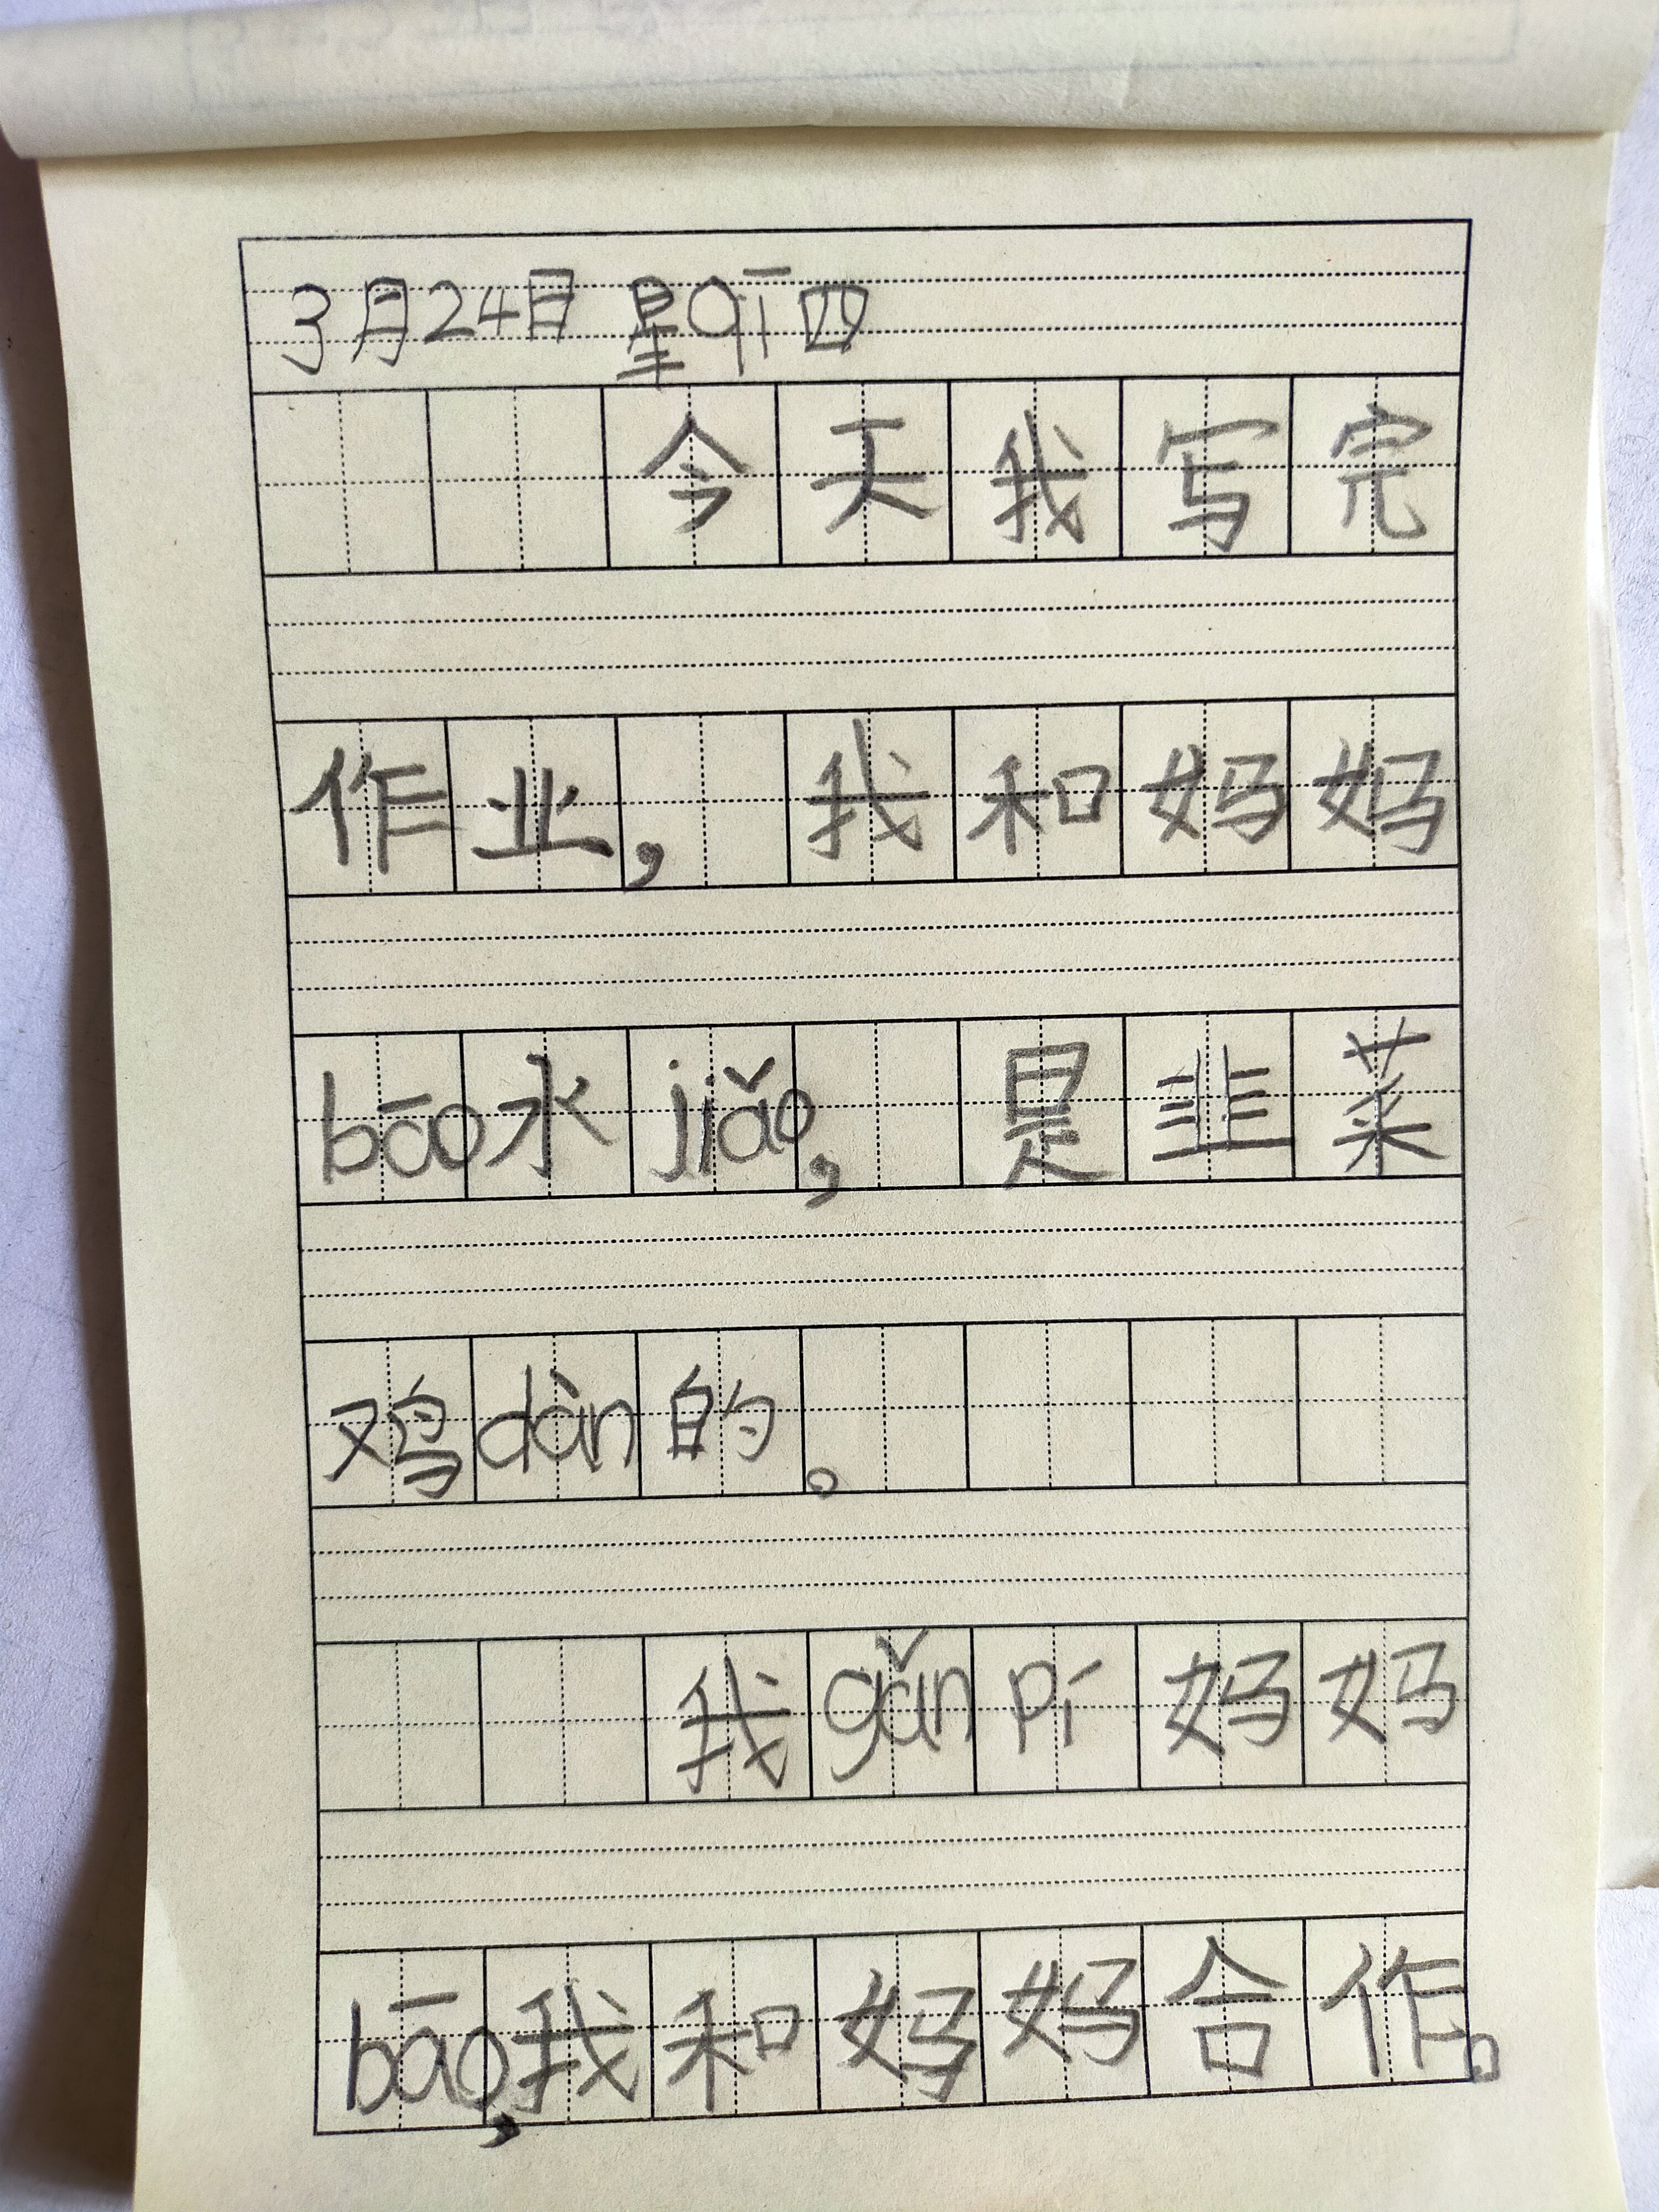 3月24日 星qī四
今天我写完
作业,我和妈妈
bāo水jiǎo,是韭菜
鸡dàn的。
我gǎn pí妈妈
bāo,我和妈妈合作。